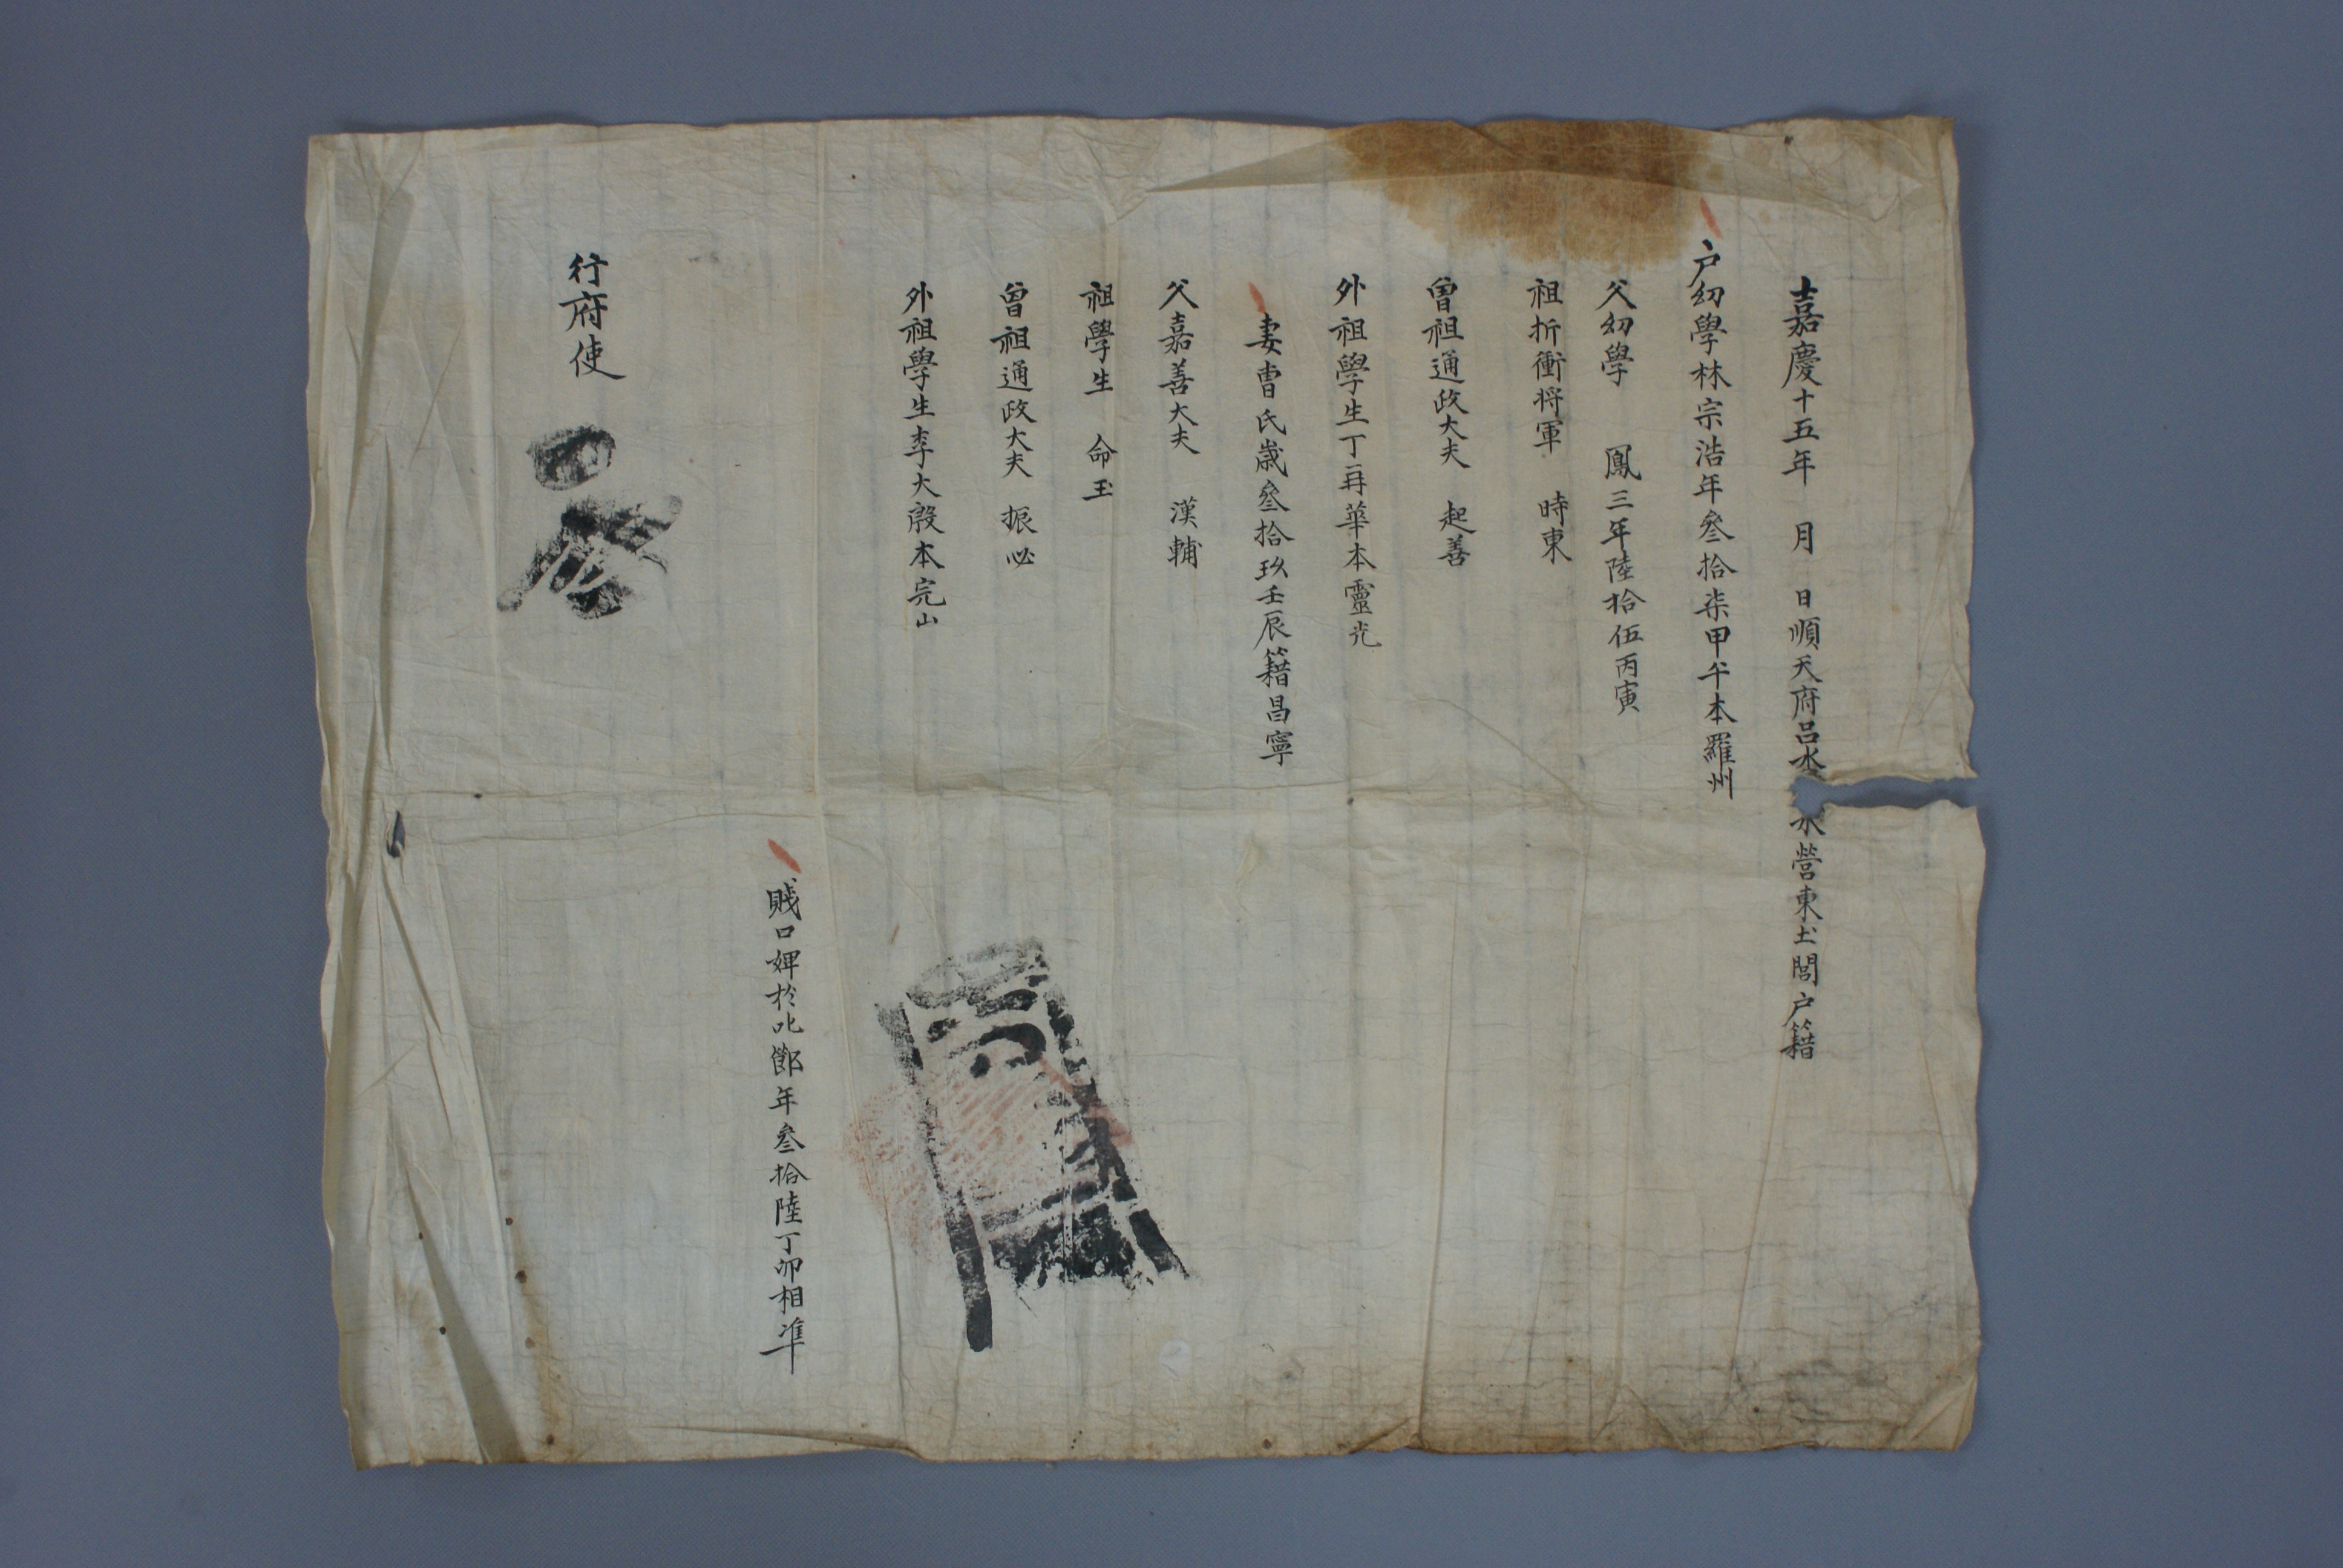 嘉慶十五年 月 日順天府呂水 水營東圡閭户籍
户幼學林宗浩年叄拾柒甲午本羅州
父幼學 鳳三年陸拾伍丙寅
祖折衝将軍 時東
曾祖通政大夫 起善
外祖學生丁再華本靈光
妻曺氏歲叄拾玖壬辰籍昌寧
父嘉善大夫 漢輔
祖學生 命玉
曾祖通政大夫 振必
外祖學生李大殷本完山
賎口婢於叱 年叄拾陸丁卯相凖
行府使